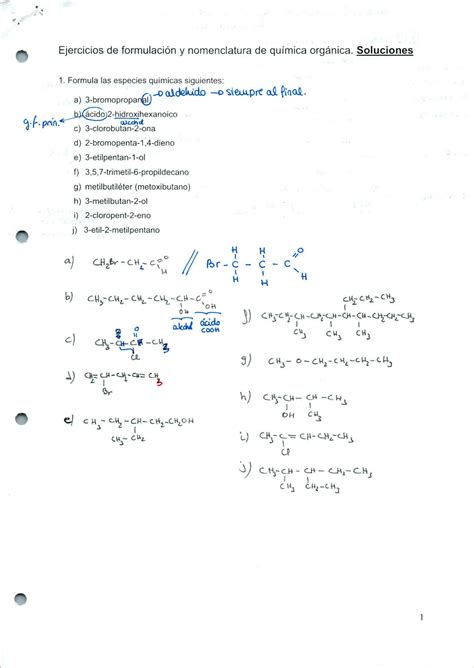 Ejercicios de formulación y nomenclatura de química orgánica. Soluciones
1. Formula las especies químicas siguientes:
a) 3-bromopropanal → aldehido → siempre al final.
g.f. prin. ← b) ácido 2-hidroxihexanoico
alcohol
c) 3-clorobutan-2-ona
d) 2-bromopenta-1,4-dieno
e) 3-etilpentan-1-ol
f) 3,5,7-trimetil-6-propildecano
g) metilbutiléter (metoxibutano)
h) 3-metilbutan-2-ol
i) 2-cloropent-2-eno
j) 3-etil-2-metilpentano
a) CH₂Br - CH₂ - C =O H // Br - C - C - C =O H
H H
H H
b) CH₃-CH₂-CH₂-CH₂-CH-C =O OH
OH
alcohol ácido
COOH
f) CH₃-CH₂-CH-CH₂-CH-CH-CH-CH₂-CH₂-CH₃
CH₂-CH₂-CH₃
CH₃ CH₃ CH₃
c) CH₃-CH-C-CH₃
O
Cl
g) CH₃-O-CH₂-CH₂-CH₂-CH₃
d)
Br
h) CH₃-CH-CH-CH₃
OH CH₃
e) CH₃-CH₂-CH-CH₂-CH₂OH
CH₃-CH₂
i) CH₃-C=CH-CH₂-CH₃
Cl
j) CH₃-CH-CH-CH₂-CH₃
CH₃ CH₂-CH₃
1